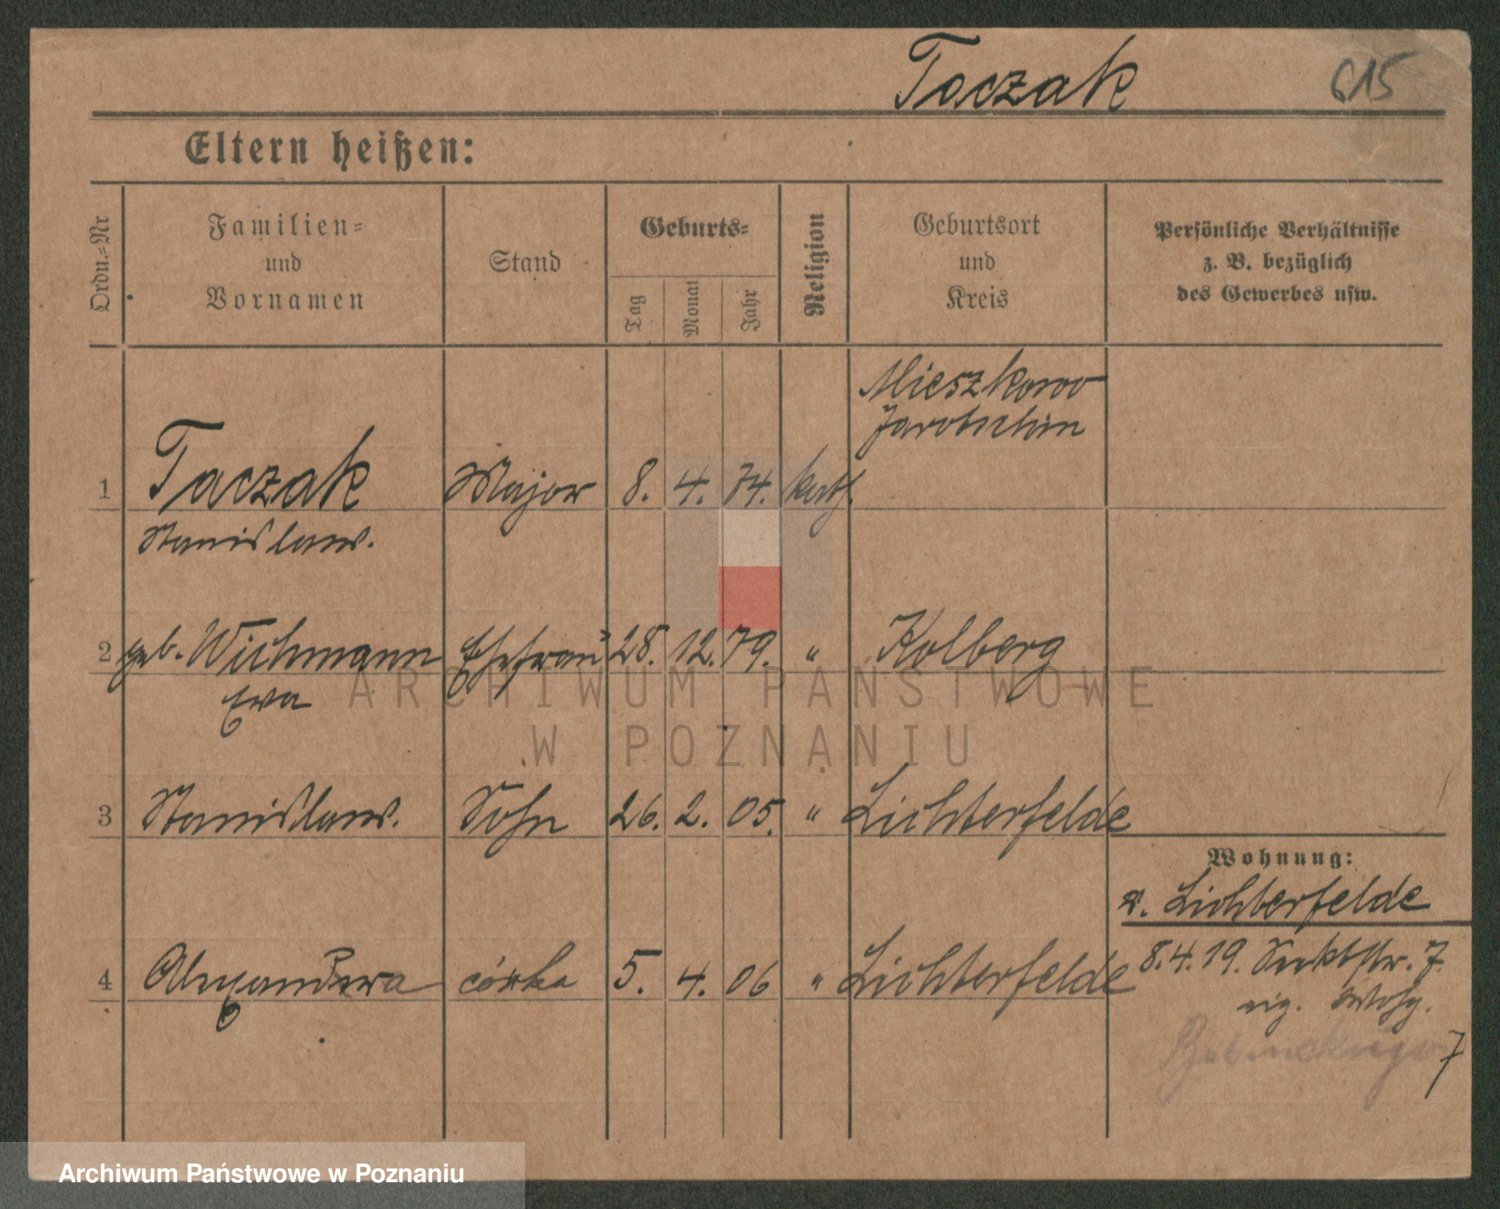 Taczak 615
Eltern heißen:
Ordn.-Nr
Familien-
und
Vornamen
Stand
Geburts-
Tag
Monat
Jahr
Religion
Geburtsort
und
Kreis
Persönliche Verhältnisse
z. B. bezüglich
des Gewerbes usw.
Mieszkowo
Jarotschin
1 Taczak Major 8. 4. 74. kath.
Stanislaus.
2 geb. Wichmann Ehefrau 28. 12. 79. " Kolberg
Eva
3 Stanislaus. Sohn 26. 2. 05. " Lichterfelde
Wohnung:
v. Lichterfelde
4 Alexandera córka 5. 4. 06 " Lichterfelde 8.4.19. 7.
eig. Wohg.
7
ARCHIWUM PAŃSTWOWE
W POZNANIU
Archiwum Państwowe w Poznaniu